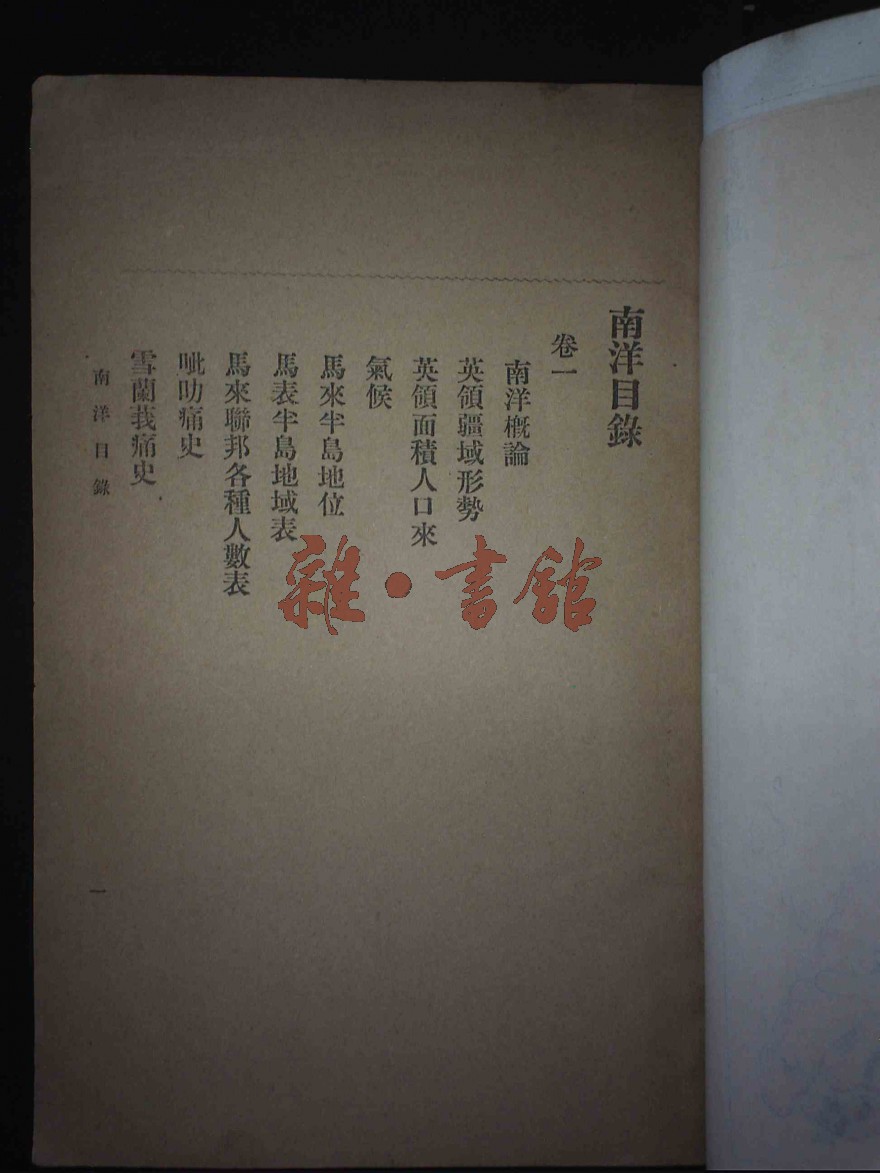 南洋目錄
卷一
南洋概論
英領疆域形勢
英領面積人口來
氣候
馬來半島地位
馬表半島地域表
馬來聯邦各種人數表
吡叻痛史
雪蘭莪痛史
南洋目錄
一
雜·書館